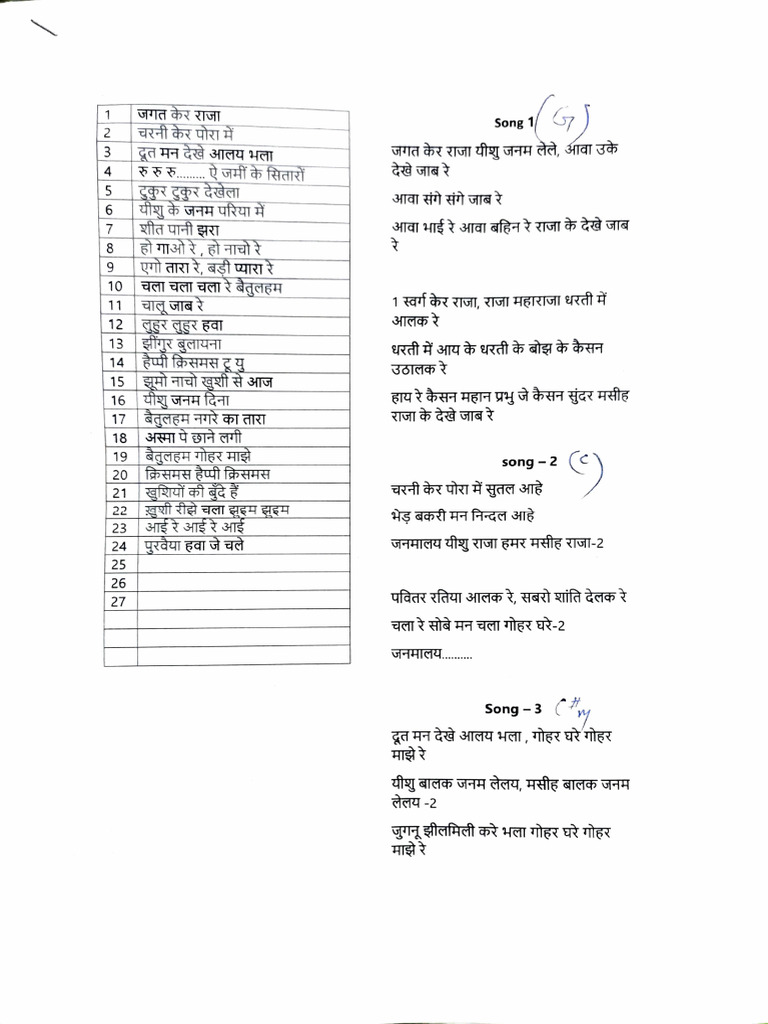 1 जगत केर राजा
2 चरनी केर पोरा में
3 दूत मन देखे आलय भला
4 रु रु रु......... ऐ जमीं के सितारों
5 टुकुर टुकुर देखेला
6 यीशु के जनम परिया में
7 शीत पानी झरा
8 हो गाओ रे , हो नाचो रे
9 एगो तारा रे, बड़ी प्यारा रे
10 चला चला चला रे बैतुलहम
11 चालू जाब रे
12 लुहुर लुहुर हवा
13 झींगुर बुलायना
14 हैप्पी क्रिसमस टू यु
15 झूमो नाचो खुशी से आज
16 यीशु जनम दिना
17 बैतुलहम नगरे का तारा
18 अस्मा पे छाने लगी
19 बैतुलहम गोहर माझे
20 क्रिसमस हैप्पी क्रिसमस
21 खुशियों की बुँदे हैं
22 ख़ुशी रीझे चला झूइम झूइम
23 आई रे आई रे आई
24 पुरवैया हवा जे चले
25
26
27
Song 1 (G)
जगत केर राजा यीशु जनम लेले, आवा उके
देखे जाब रे
आवा संगे संगे जाब रे
आवा भाई रे आवा बहिन रे राजा के देखे जाब
रे
1 स्वर्ग केर राजा, राजा महाराजा धरती में
आलक रे
धरती में आय के धरती के बोझ के कैसन
उठालक रे
हाय रे कैसन महान प्रभु जे कैसन सुंदर मसीह
राजा के देखे जाब रे
song – 2 (C)
चरनी केर पोरा में सुतल आहे
भेड़ बकरी मन निन्दल आहे
जनमालय यीशु राजा हमर मसीह राजा-2
पवितर रतिया आलक रे, सबरो शांति देलक रे
चला रे सोबे मन चला गोहर घरे-2
जनमालय..........
Song – 3 C#m
दूत मन देखे आलय भला , गोहर घरे गोहर
माझे रे
यीशु बालक जनम लेलय, मसीह बालक जनम
लेलय -2
जुगनू झीलमिली करे भला गोहर घरे गोहर
माझे रे